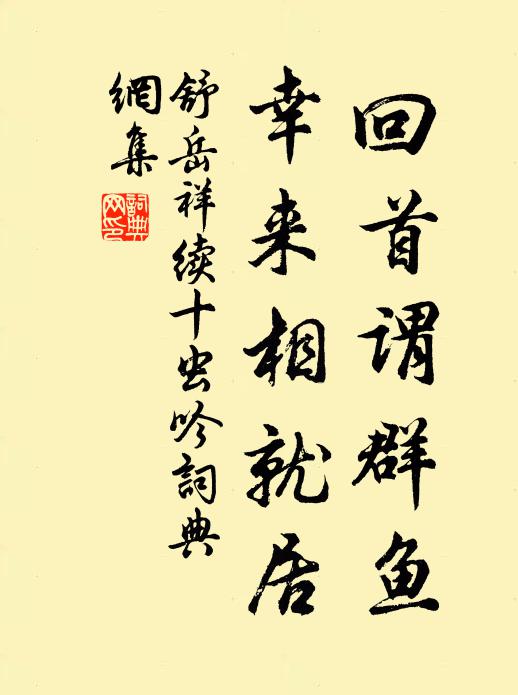 回首谓群鱼
幸来相就居
舒岳祥续十虫吟詞典
網集
詞典
网印